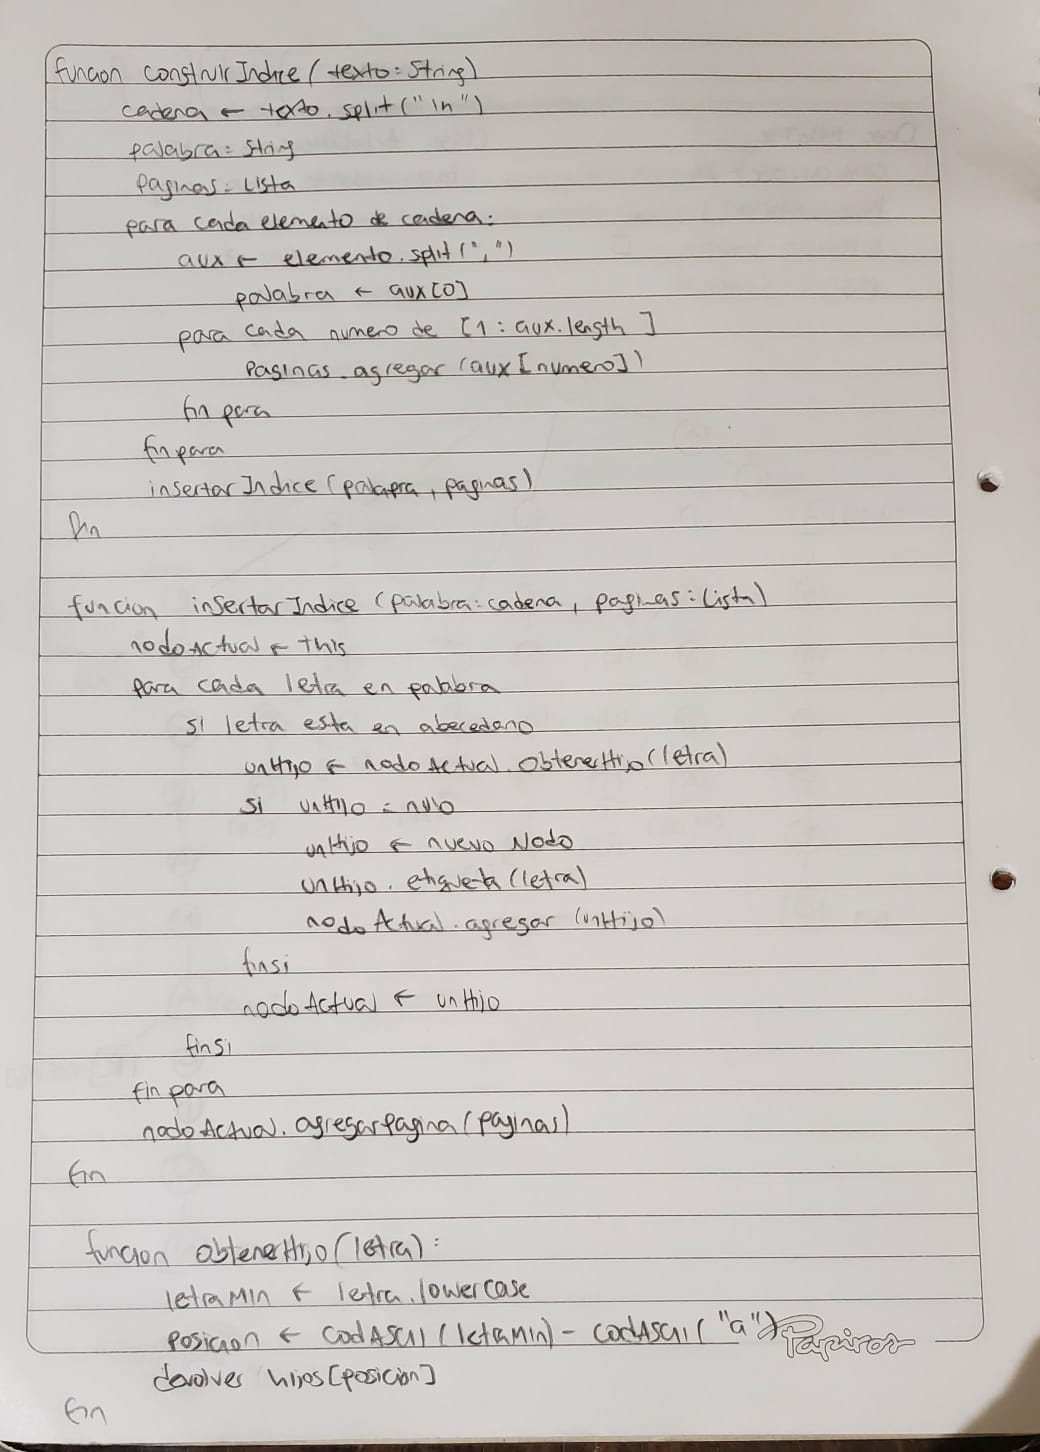 funcion construirIndice (texto: String)
cadena ← texto.split("\n")
palabra: String
Paginas: Lista
para cada elemento de cadena:
aux ← elemento.split(",")
palabra ← aux[0]
para cada numero de [1: aux.length]
Paginas.agregar (aux[numero])
fin para
fin para
insertarIndice (palapra, paginas)
fin
funcion insertarIndice (palabra: cadena, paginas: Lista)
nodoActual ← this
para cada letra en palabra
si letra esta en abecedario
unHijo ← nodoActual.obtenerHijo(letra)
si unHijo = nulo
unHijo ← nuevo Nodo
unHijo.etiqueta(letra)
nodoActual.agregar (unHijo)
finsi
nodoActual ← unHijo
finsi
fin para
nodoActual.agregarPagina (paginas)
fin
funcion obtenerHijo (letra):
letraMin ← letra.lowercase
posicion ← codASCII (letraMin) - codASCII ("a")
Papiros
devolver hijos[posicion]
fin